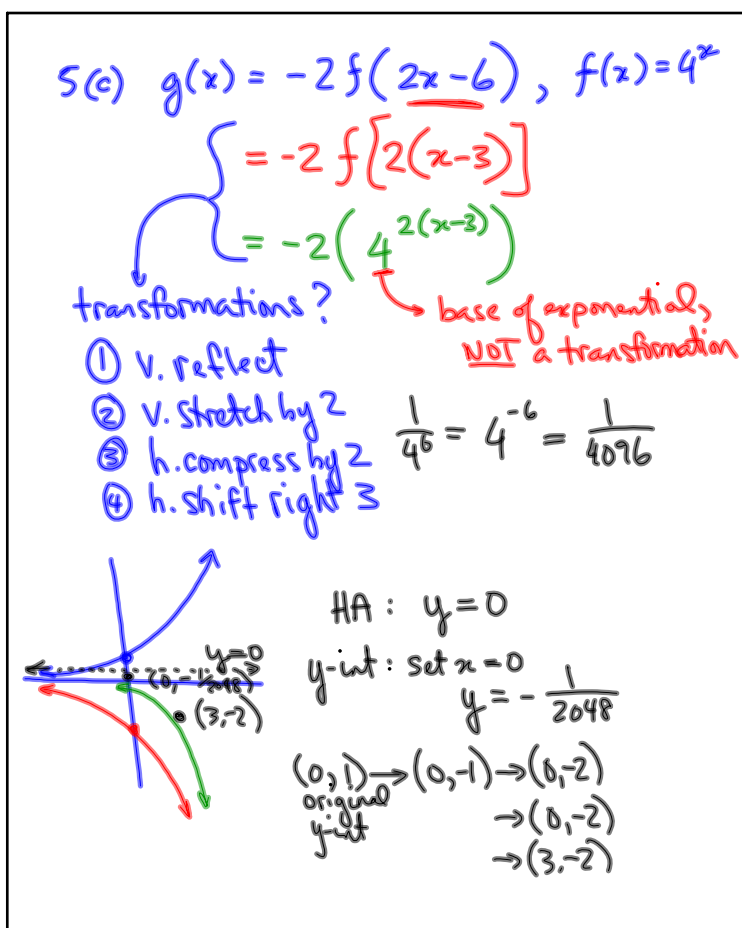 5(c) g(x) = -2f(2x-6), f(x)=4^x
= -2f[2(x-3)]
= -2(4^{2(x-3)})
transformations?
→ base of exponential,
NOT a transformation
① v. reflect
② v. stretch by 2
③ h. compress by 2
④ h. shift right 3
1/4^6 = 4^{-6} = 1/4096
y=0
(0,-1/2048)
(3,-2)
HA: y=0
y-int: set x=0
y = -1/2048
(0,1)→(0,-1)→(0,-2)
original
y-int
→(0,-2)
→(3,-2)